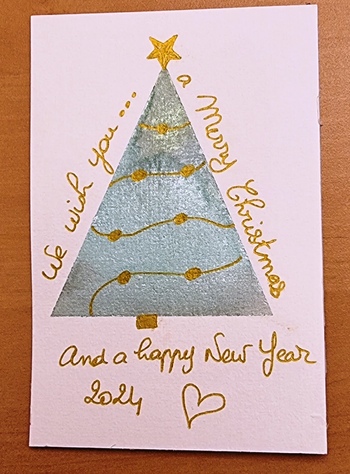 We wish you...
a Merry Christmas
And a happy New Year
2024